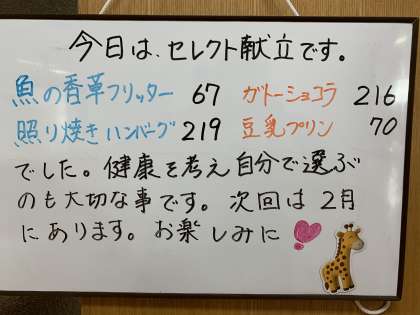 今日は、セレクト献立です。
魚の香草フリッター 67 ガトーショコラ 216
照り焼きハンバーグ 219 豆乳プリン 70
でした。健康を考え自分で選ぶ
のも大切な事です。次回は2月
にあります。お楽しみに